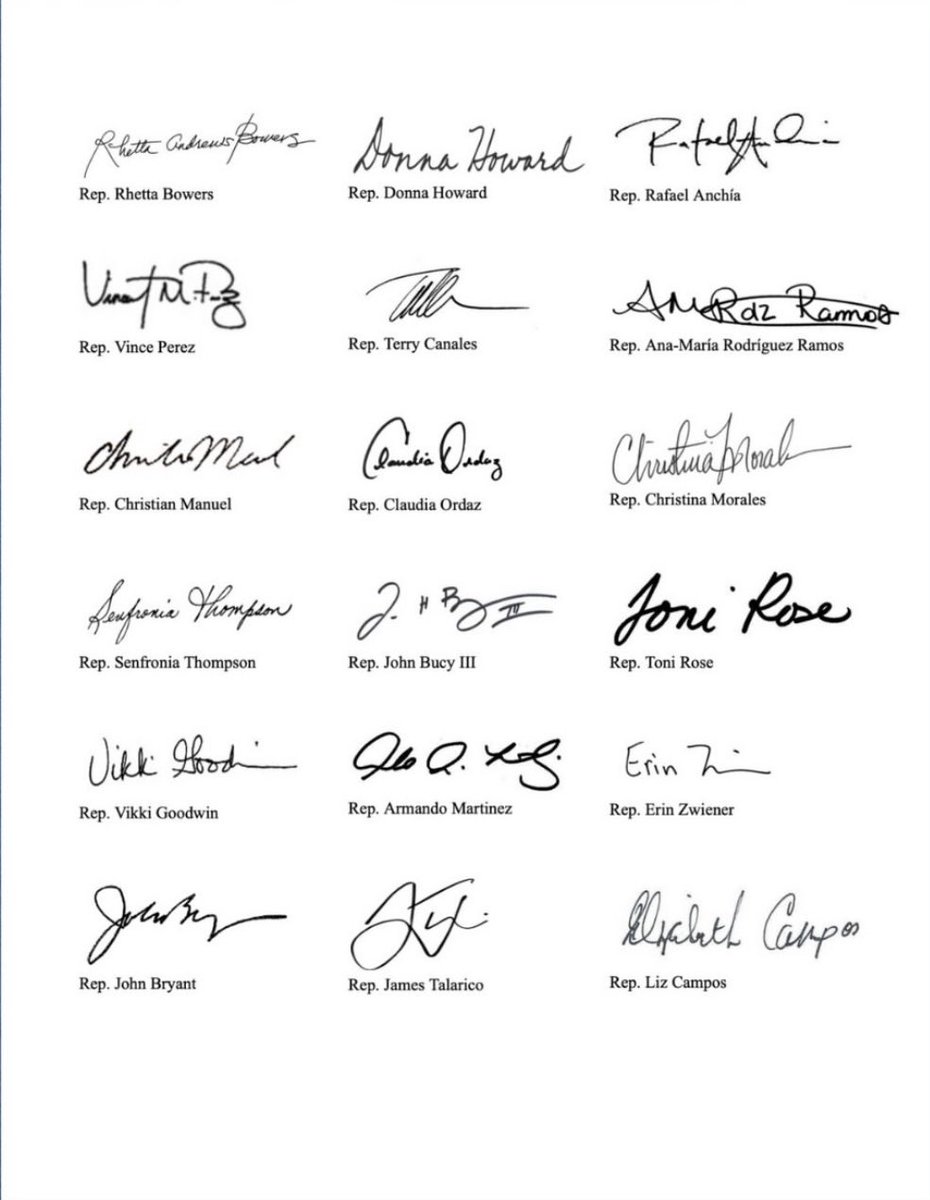 Rhetta Andrews Bowers Donna Howard Rafael Anchia
Rep. Rhetta Bowers Rep. Donna Howard Rep. Rafael Anchía
Rep. Vince Perez Rep. Terry Canales Rep. Ana-María Rodríguez Ramos
AM Rdz Ramos
Claudia Ordaz Christina Morales
Rep. Christian Manuel Rep. Claudia Ordaz Rep. Christina Morales
Senfronia Thompson Toni Rose
Rep. Senfronia Thompson Rep. John Bucy III Rep. Toni Rose
Vikki Goodwin Erin
Rep. Vikki Goodwin Rep. Armando Martinez Rep. Erin Zwiener
John Elizabeth Campos
Rep. John Bryant Rep. James Talarico Rep. Liz Campos